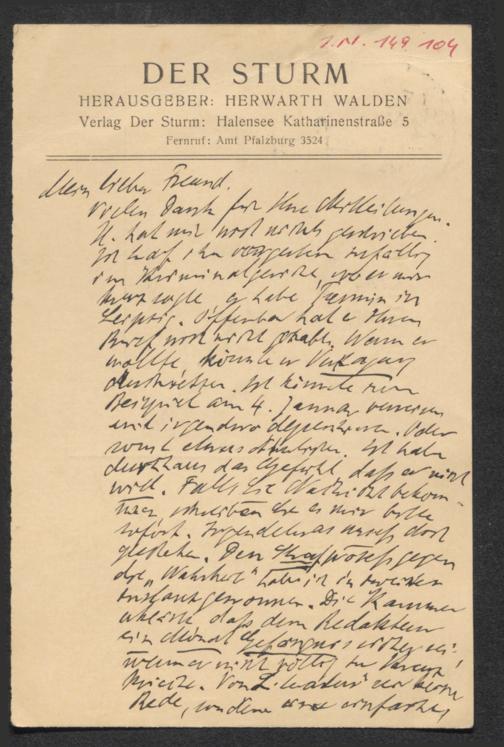 I.N. 149 104
DER STURM
HERAUSGEBER: HERWARTH WALDEN
Verlag Der Sturm: Halensee Katharinenstraße 5
Fernruf: Amt Pfalzburg 3524
Mein lieber Freund.
Vielen Dank für Ihre Mitteilungen.
K. hat mir noch nichts geschrieben.
Ich traf ihn vorgestern zufällig
im Kriminalgericht, wo er mir
kurz sagte, er habe Termin in
Leipzig. Offenbar hat er Ihren
Brief noch nicht gehabt. Wenn er
wollte, könnte er Vertagung
durchsetzen. Ich könnte zum
Beispiel am 4. Januar verreisen
und irgendwo deponieren. Oder
sonst etwas. Ich habe
durchaus das Gefühl, daß er nicht
will. Falls Sie Nachricht bekom-
men, schreiben Sie es mir bitte
sofort. Irgendetwas muß doch
geschehen. Den Strafprozeß gegen
die „Wahrheit" habe ich in zweiter
Instanz gewonnen. Die Kammer
erklärte, daß dem Redakteur
ein Monat Gefängnis sicher sei,
wenn er nicht völlig zu Kreuz
krieche. Von keine
Rede, sondern einfaches